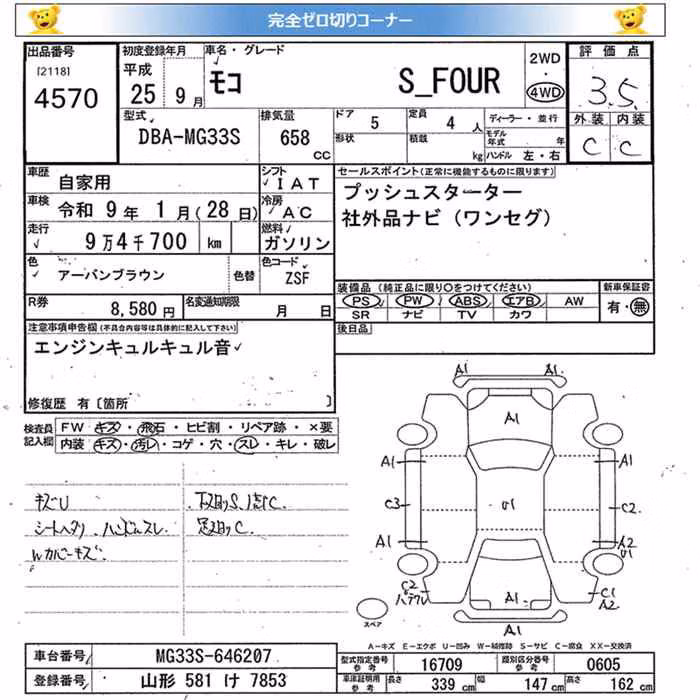 完全ゼロ切りコーナー
出品番号 初度登録年月 車名・グレード 2WD 評価点
[2118] 平成 モコ S_FOUR ・ 3.5
4570 25 9月 4WD
型式 排気量 ドア 5 定員 4人 ディーラー・並行 外装 内装
DBA-MG33S 658 cc 形状 積載 kg モデル年式 年 C C
ハンドル 左・右
車歴 自家用 シフト IAT セールスポイント(正常に機能するものに限ります)
車検 令和 9年 1月(28日) 冷房 AC プッシュスターター
走行 9万4千700 km 燃料 ガソリン 社外品ナビ(ワンセグ)
色 アーバンブラウン 色替 色コード ZSF
装備品(純正品に限り○をつけてください) 新車保証書
R券 8,580円 名変通知期限 月 日 PS PW ABS エアB AW 有・無
SR ナビ TV カワ
注意事項申告欄(不具合内容等は具体的に記入して下さい) 後日品
エンジンキュルキュル音
修復歴 有〔箇所 〕
検査員記入欄 FW キズ・飛石・ヒビ割・リペア跡・×要
内装 キズ・汚レ・コゲ・穴・スレ・キレ・破レ
キズU 下廻りS、
シートヘタリ、ハンドルスレ 足廻りC.
Wカバーキズ
A1 A1
A1
A1 A1
C3 U1 C2
A1 A2
U1
C2 C1
A1 A2
スペア A1
A-キズ E-エクボ U-凹み W-補修跡 S-サビ C-腐食 XX-交換済
車台番号 MG33S-646207 型式指定番号 参考 16709 類別区分番号 参考 0605
登録番号 山形 581 け 7853 車庫証明用 参考 長さ 339 cm 幅 147 cm 高さ 162 cm